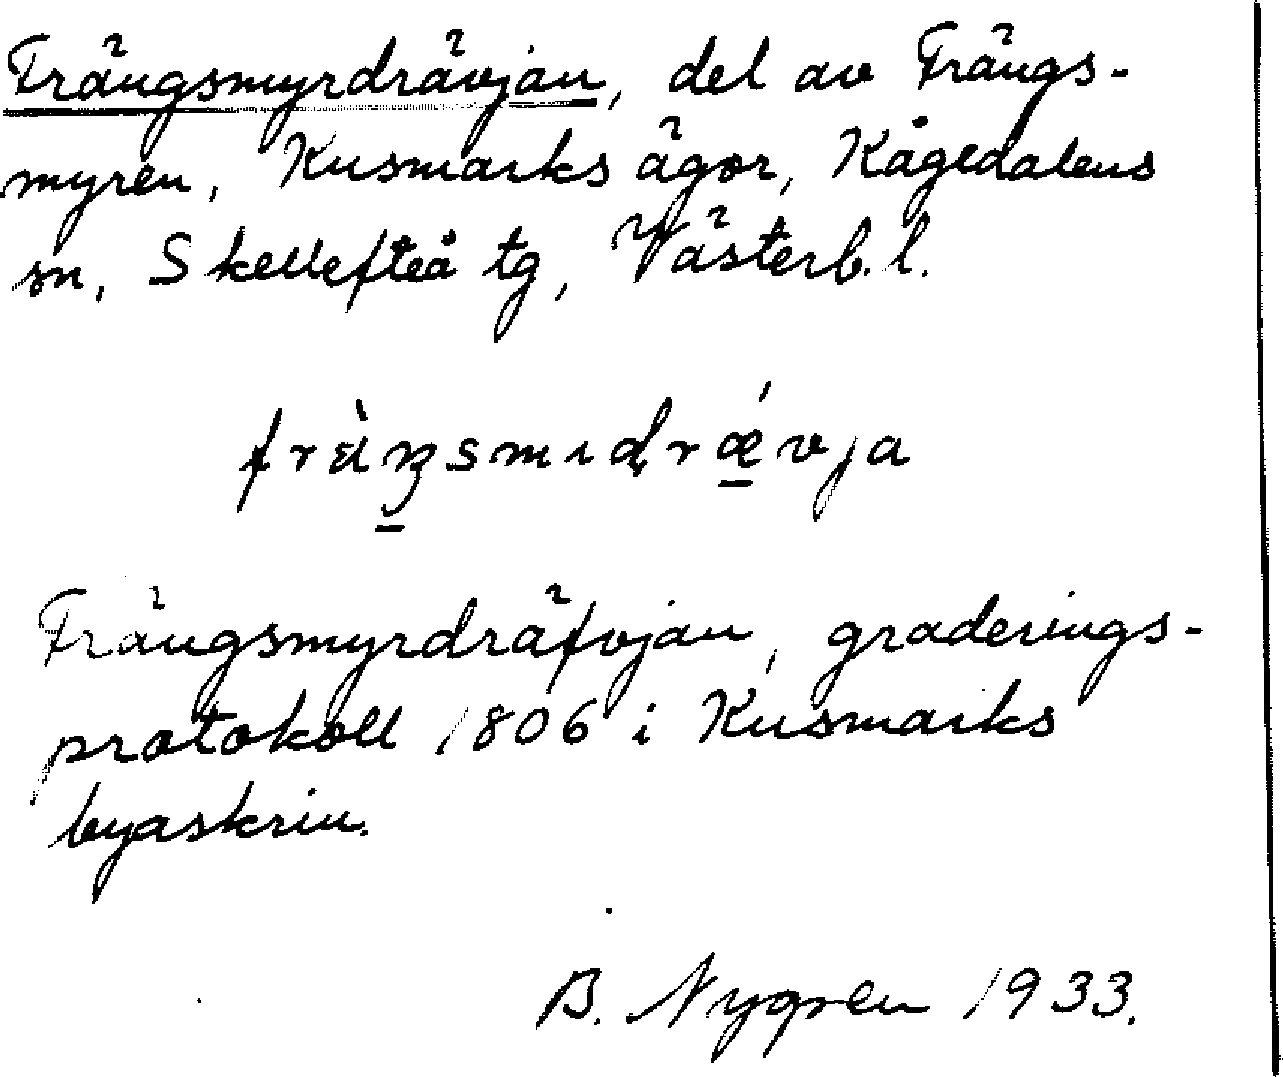 Frängsmyrdrävjan, del av Frängs-
myren, Kusmarks ägor, Kågedalens
sn, Skellefteå tg, Västerb. l.
Frängsmyrdräfvjan, graderings-
protokoll 1806 i Kusmarks
byaskrin.
B. Nygren 1933.